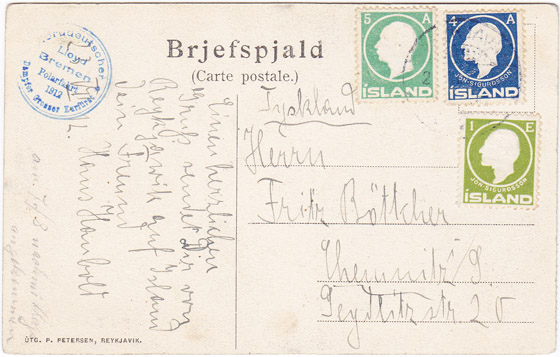 Norddeutscher
Lloyd
Bremen
Polarfahrt
1912
Dampfer Grosser Kurfürst
Brjefspjald
(Carte postale.)
5 A
ÍSLAND
4 A
JÓN·SIGURÐSSON
ÍSLAND
1 E
JÓN·SIGURÐSSON
ÍSLAND
Einen herzlichen
Gruß sendet Dir von
Reykjavik auf Island
Dein Freund
Hans
Tyskland
Herrn
Fritz Böttcher
Chemnitz S.
Seydlitzstr 20
ÚTG. P. PETERSEN, REYKJAVIK.